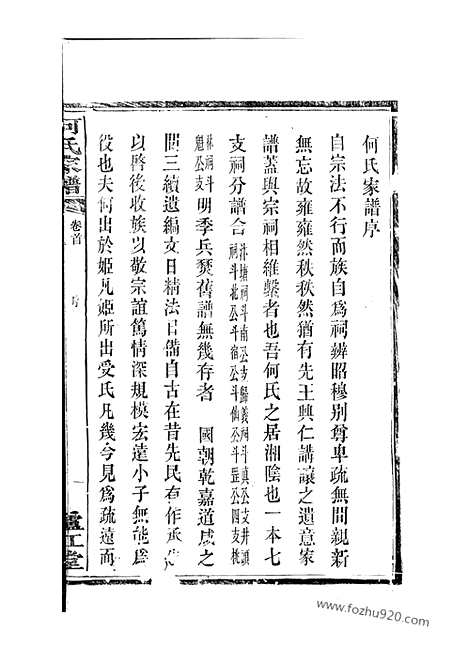 何氏家譜序
自宗法不行而族自爲祠辨昭穆别尊卑疏無間親新
無忘故雍雍然秩秩然猶有先王興仁講讓之遺意家
譜蓋與宗祠相維繫者也吾何氏之居湘陰也一本七
支祠分譜合
祠斗北公斗宿公斗仙公斗罡公四支桃
林祠斗
魁公支
明季兵燹舊譜無幾存者 國朝乾嘉道咸之
間三續遺編文日精法日備自古在昔先民有作承
以啓後收族以敬宗誼篤情深規模宏遠小子無能爲
役也夫何出於姬凡姬所出受氏凡幾今見爲疏遠而
何氏家譜
卷首
序
廬江堂
www.fozhu920.com